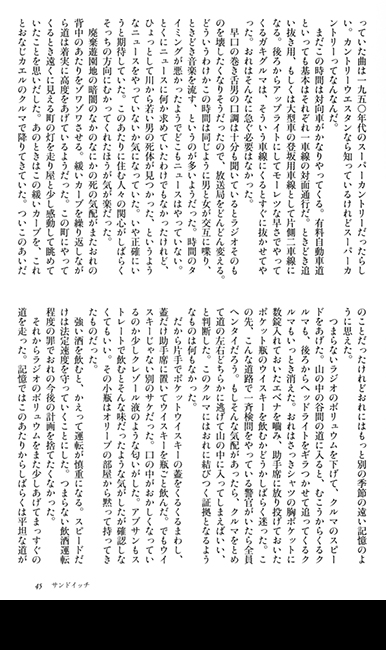 っていた曲は一九五〇年代のスーパーカントリーだったらし
い。カントリーウエスタンなら知っているけれどスーパーカ
ントリーってなんなんだ。
まだこの時間は対向車がかなりやってくる。有料自動車道
といっても基本はそれぞれ一車線の対面通行だ。ときどき追
い抜き用、もしくは大型車の登坂用車線として片側二車線に
なる。後ろからアップライトにしてモーレツな早さでやって
くるガキグルマは、そういう車線にくるとすぐに抜かせてや
った。おれはそんなに急ぐ必要はなかった。
早口の巻き舌男の口調は十分も聞いているとラジオそのも
のを壊したくなりそうだったので、放送局をどんどん変える。
どういうわけかこの時間は同じように男と女が交互に喋り、
ときどき音楽を流す、というのが多いようだった。時間のタ
イミングが悪かったようでどこもニュースはやっていない。
とくにニュースに何か求めていたわけでもなかったけれど、
ひょっとして川から若い男の死体が見つかった、というよう
なニュースをやっていないか気になっていた。いや正確にい
うと期待していた。このあたりに住む人々の関心がしばらく
そっちの方向にむかってくれたほうが気が楽だった。
廃棄遊園地の暗闇のなかのなにかの死の気配がまたおれの
背中のあたりをゾワゾワさせる。緩いカーブを繰り返しなが
ら道は着実に高度をあげているようだった。この町にやって
くるとき遠くに見える町の灯を走り屋と少し感動して眺めて
いたことを思いだした。あのときはこの緩いカーブを、これ
とおなじカエルのクルマで降りてきていた。ついこのあいだ
のことだったけれどおれにはもっと別の季節の遠い記憶のよ
うに思えた。
つまらないラジオのボリュウムを下げて、クルマのスピー
ドをあげた。山の中の谷間の道に入ると、むこうからくるク
ルマも、後ろからヘッドライトをギラつかせて追ってくるク
ルマもいっとき消えた。おれはさっきシャツの胸ポケットに
数錠入れておいたエベナを嚙み、助手席に放り投げておいた
ポケット瓶のウイスキーを飲むかどうしばらく迷った。こ
の先、こんな道路で一斉検問をやっている警官がいたら全員
ヘンタイだろう。もしそんな気配があったら、クルマをとめ
て道の左右どちらかに逃げて山の中に入ってしまえばいい、
と判断した。このクルマにはおれに結びつく証拠となるよう
なものは何もない。
だから片手でポケットウイスキーの蓋をくるくるまわし、
蓋だけ助手席に置いてウイスキーを瓶ごと飲んだ。でもウイ
スキーじゃない別のサケだった。口の中がおかしくなってい
るのか少しクレゾール液のような匂いがした。アブサンもス
トレートで飲むとそんな味だったような気がしたが確認しな
くてもいい。その小瓶はオリーブの部屋から黙って持ってき
たものだった。
強い酒を飲むと、かえって運転が慎重になる。スピードだ
けは法定速度を守っていくことにした。つまらない飲酒運転
程度の罪でおれの今後の計画を捨てたくなかった。
それからラジオのボリュウムをまた少しあげてまっすぐの
道を走った。記憶ではこのあたりからしばらくは平坦な道が
45 サンドイッチ